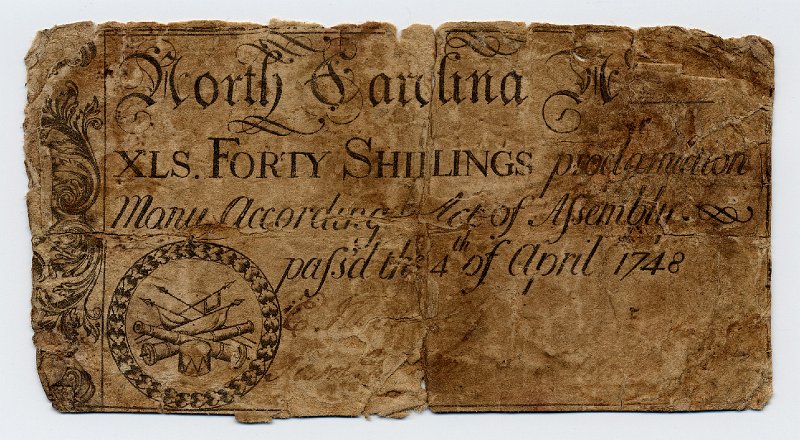 North Carolina N°
XLS. FORTY SHILLINGS proclamation
Mony According to Act of Assembly.
pass'd the 4th of April 1748